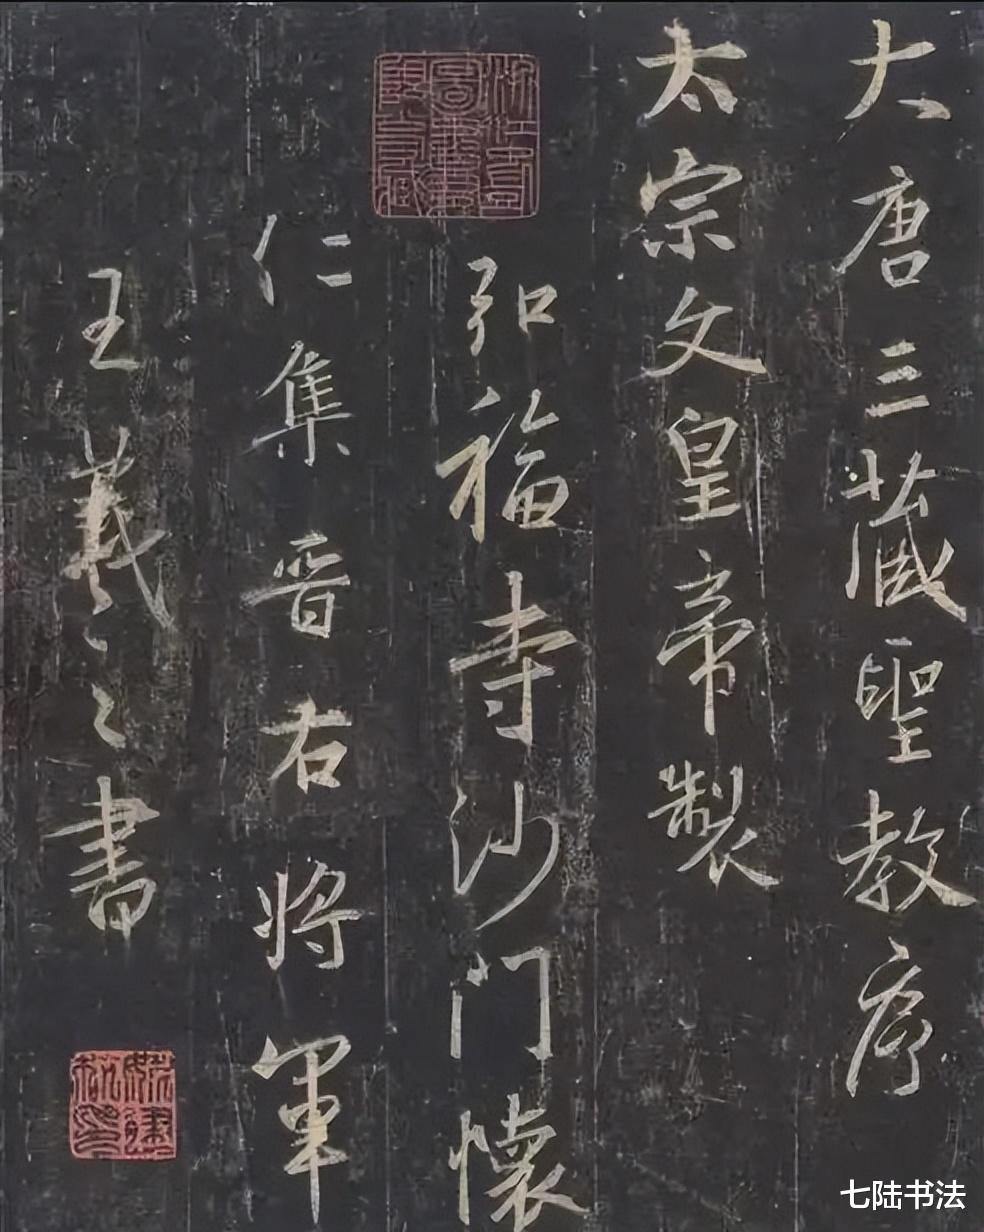 大唐三藏聖教序
太宗文皇帝製
弘福寺沙门懷
仁集晉右将軍
王羲之書
七陆书法